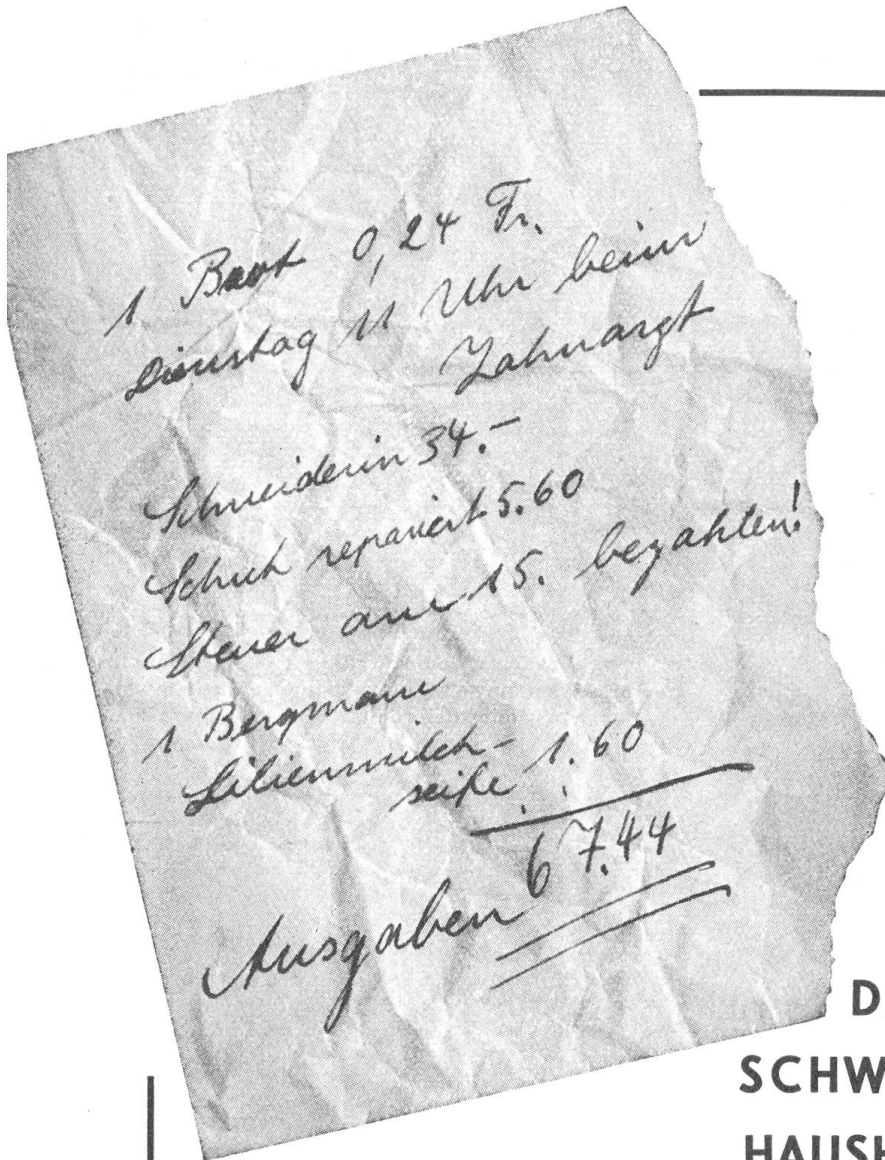 1 Brot 0,24 Fr.
Dienstag 11 Uhr beim
Zahnarzt
Schneiderin 34.-
Schuh repariert 5.60
Steuer am 15. bezahlen!
1 Bergmann
Lilienmilch-
seife 1.60
Ausgaben 67.44
D
SCHW
HAUSH